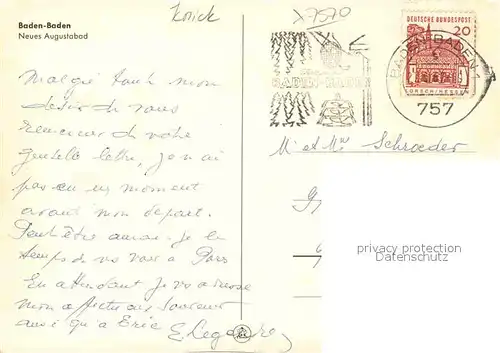 Baden-Baden
Neues Augustabad
x 7570
DEUTSCHE BUNDESPOST
20
LORSCH/HESSEN
BADEN-BADEN
BADEN-BADEN 1
757
Malgré tout mon
désir de vous
remercier de votre
gentille lettre, je n'ai
pas eu un moment
avant mon départ.
Peut être aurai-je le
temps de vs voir à Paris
En attendant je vs adresse
mon affectueux souvenir
ainsi qu'à Eric
M et Mme Schroeder
privacy protection
ansichtskarten-lexikon.de